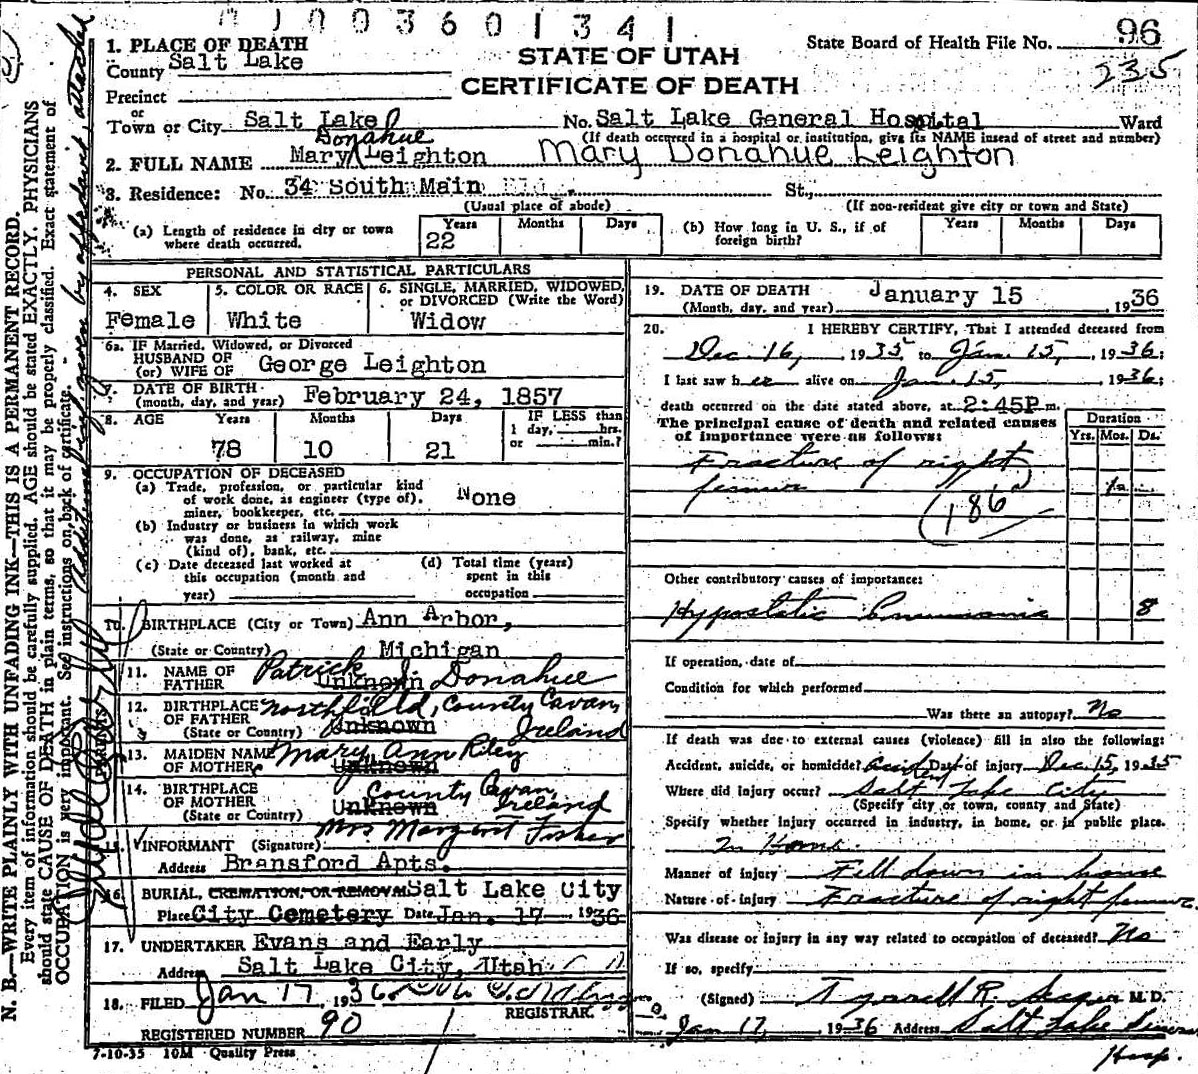 01003601341
96
235
STATE OF UTAH
CERTIFICATE OF DEATH
State Board of Health File No.
1. PLACE OF DEATH
County Salt Lake
Precinct
or
Town or City Salt Lake No. Salt Lake General Hospital Ward
(If death occurred in a hospital or institution, give its NAME insead of street and number)
Donahue
2. FULL NAME Mary Leighton Mary Donahue Leighton
3. Residence: No. 34 South Main St.,
(Usual place of abode) (If non-resident give city or town and State)
(a) Length of residence in city or town where death occurred. Years 22 Months Days
(b) How long in U. S., if of foreign birth? Years Months Days
PERSONAL AND STATISTICAL PARTICULARS
4. SEX Female
5. COLOR OR RACE White
6. SINGLE, MARRIED, WIDOWED, or DIVORCED (Write the Word) Widow
6a. IF Married, Widowed, or Divorced
HUSBAND OF
(or) WIFE OF George Leighton
DATE OF BIRTH
(month, day, and year) February 24, 1857
8. AGE Years 78 Months 10 Days 21
IF LESS than 1 day, hrs. or min.?
9. OCCUPATION OF DECEASED
(a) Trade, profession, or particular kind
of work done, as engineer (type of),
miner, bookkeeper, etc. None
(b) Industry or business in which work
was done, as railway, mine
(kind of), bank, etc.
(c) Date deceased last worked at
this occupation (month and
year)
(d) Total time (years)
spent in this
occupation
10. BIRTHPLACE (City or Town) Ann Arbor,
(State or Country) Michigan
11. NAME OF FATHER Patrick J. Donahue
Unknown
12. BIRTHPLACE OF FATHER Northfield, County Cavan,
(State or Country) Unknown Ireland
13. MAIDEN NAME OF MOTHER Mary Ann Riley
Unknown
14. BIRTHPLACE OF MOTHER County Cavan,
(State or Country) Unknown Ireland
INFORMANT (Signature) Mrs Margaret Fisher
Address Bransford Apts.
16. BURIAL, CREMATION, OR REMOVAL Salt Lake City
Place City Cemetery Date Jan. 17 1936
17. UNDERTAKER Evans and Early
Address Salt Lake City, Utah
18. FILED Jan 17, 1936
REGISTRAR.
REGISTERED NUMBER 90
7-10-35 10M Quality Press
19. DATE OF DEATH
(Month, day, and year) January 15 1936
20. I HEREBY CERTIFY, That I attended deceased from
Dec. 16, 1935 to Jan. 15, 1936;
I last saw her alive on Jan. 15, 1936;
death occurred on the date stated above, at 2:45P m.
The principal cause of death and related causes
of importance were as follows:
Duration
Yrs. Mos. Ds.
Fracture of right
femur
(186a)
Other contributory causes of importance:
Hypostatic Pneumonia 8
If operation, date of
Condition for which performed
Was there an autopsy? No
If death was due to external causes (violence) fill in also the following:
Accident, suicide, or homicide? Accident Date of injury Dec. 15, 1935
Where did injury occur? Salt Lake City
(Specify city or town, county and State)
Specify whether injury occurred in industry, in home, or in public place.
In Home.
Manner of injury Fell down in house
Nature of injury Fracture of right femur.
Was disease or injury in any way related to occupation of deceased? No
If so, specify
(Signed) M. D.
Jan 17, 1936 Address Salt Lake General
Hosp.
N. B.—WRITE PLAINLY WITH UNFADING INK—THIS IS A PERMANENT RECORD.
Every item of information should be carefully supplied. AGE should be stated EXACTLY. PHYSICIANS
should state CAUSE OF DEATH in plain terms, so that it may be properly classified. Exact statement of
OCCUPATION is very important. See instructions on back of certificate.